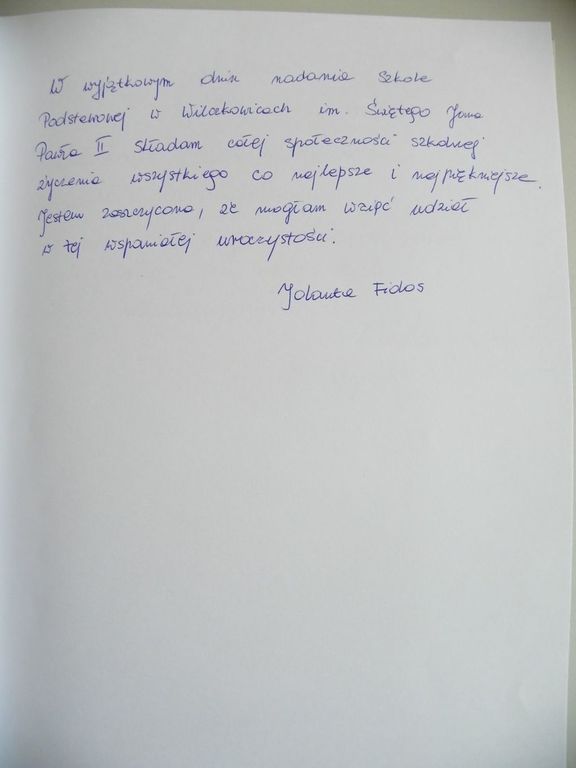 W wyjątkowym dniu nadania Szkole
Podstawowej w Wilczkowicach im. Świętego Jana
Pawła II składam całej społeczności szkolnej
życzenia wszystkiego co najlepsze i najpiękniejsze.
Jestem zaszczycona, że mogłam wziąć udział
w tej wspaniałej uroczystości.
Jolanta Fidos